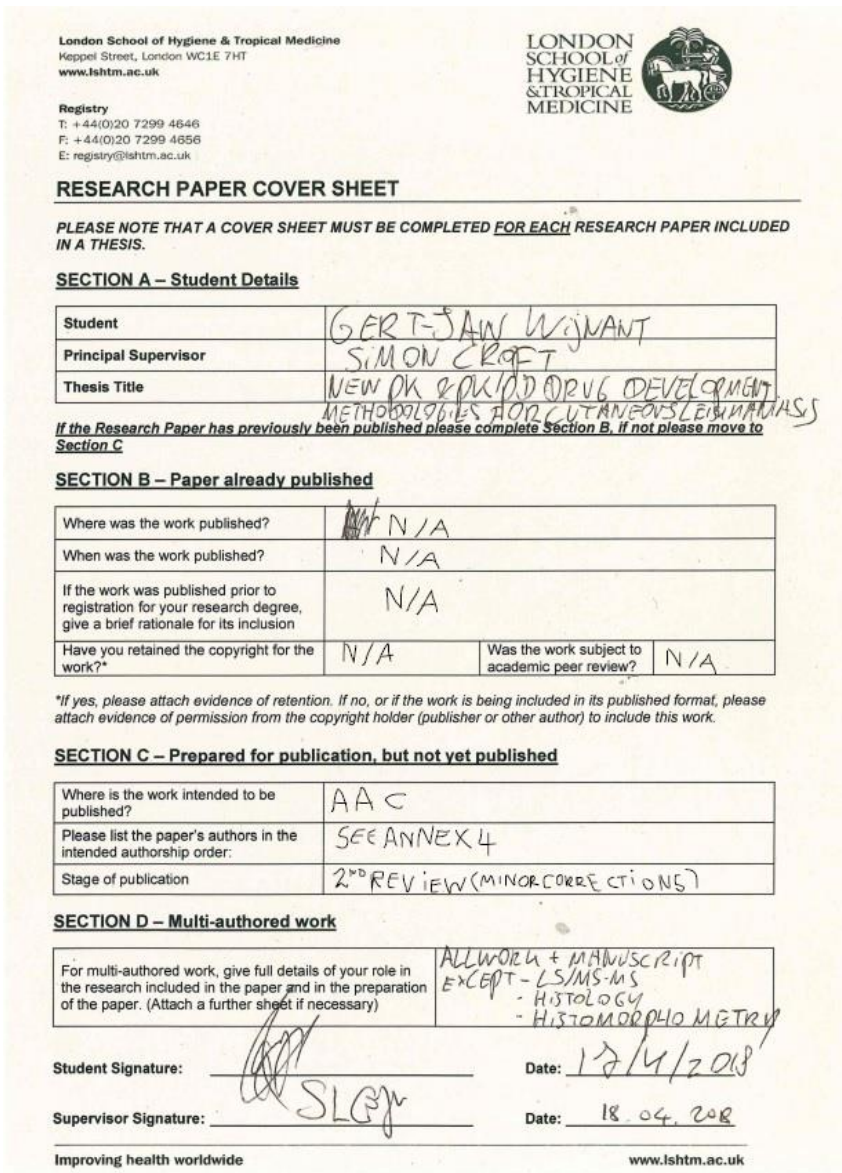 London School of Hygiene & Tropical Medicine
Keppel Street, London WC1E 7HT
www.lshtm.ac.uk
LONDON
SCHOOL of
HYGIENE
& TROPICAL
MEDICINE
Registry
T: +44(0)20 7299 4646
F: +44(0)20 7299 4656
E: registry@lshtm.ac.uk
RESEARCH PAPER COVER SHEET
PLEASE NOTE THAT A COVER SHEET MUST BE COMPLETED FOR EACH RESEARCH PAPER INCLUDED
IN A THESIS.
SECTION A – Student Details
Student GERT-JAN WIJNANT
Principal Supervisor SIMON CROFT
Thesis Title NEW PK & PK/PD DRUG DEVELOPMENT
METHODOLOGIES FOR CUTANEOUS LEISHMANIASIS
If the Research Paper has previously been published please complete Section B, if not please move to
Section C
SECTION B – Paper already published
Where was the work published? N/A
When was the work published? N/A
If the work was published prior to
registration for your research degree,
give a brief rationale for its inclusion
N/A
Have you retained the copyright for the
work?*
N/A
Was the work subject to
academic peer review?
N/A
*If yes, please attach evidence of retention. If no, or if the work is being included in its published format, please
attach evidence of permission from the copyright holder (publisher or other author) to include this work.
SECTION C – Prepared for publication, but not yet published
Where is the work intended to be
published?
AAC
Please list the paper's authors in the
intended authorship order:
SEE ANNEX 4
Stage of publication 2ND REVIEW (MINOR CORRECTIONS)
SECTION D – Multi-authored work
For multi-authored work, give full details of your role in
the research included in the paper and in the preparation
of the paper. (Attach a further sheet if necessary)
ALL WORK + MANUSCRIPT
EXCEPT - LS/MS-MS
- HISTOLOGY
- HISTOMORPHOMETRY
Student Signature: Date: 17/4/2018
Supervisor Signature: Date: 18.04.2018
Improving health worldwide www.lshtm.ac.uk